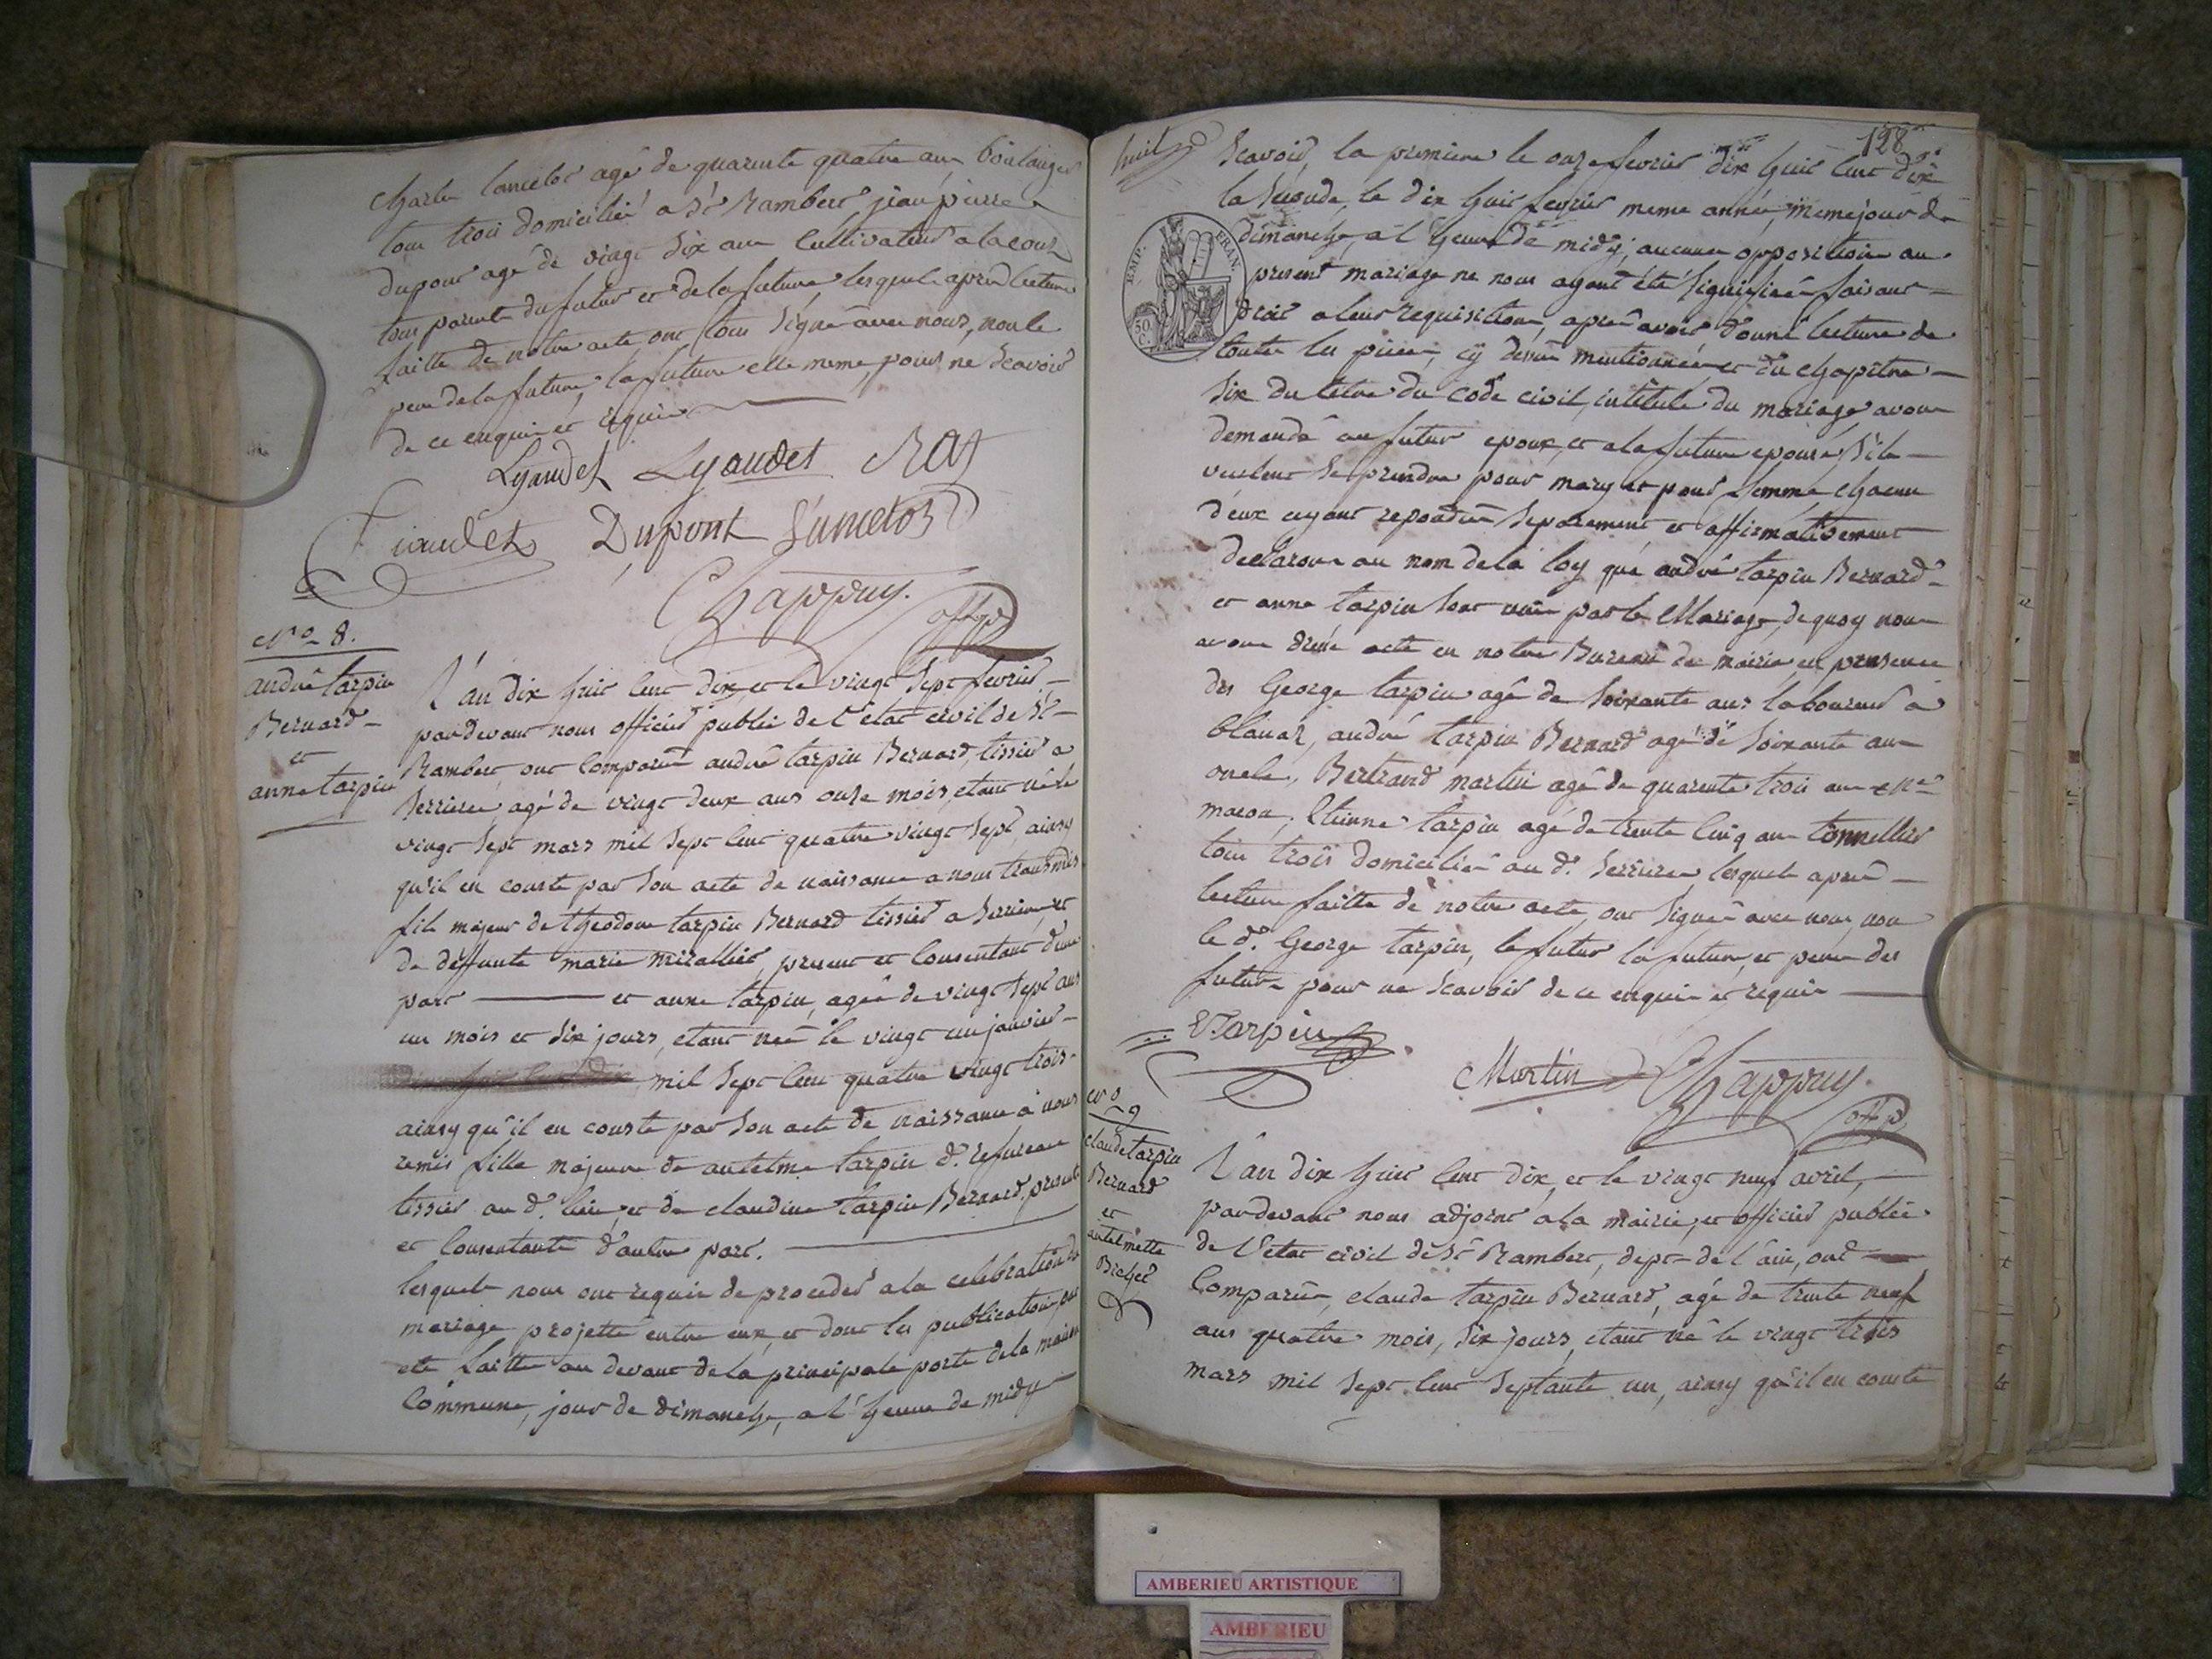 Charle Lancelot agé de quarente quatre ans, boulanger
tous trois domicilié a St Rambert, jean pierre
dupont agé de vingt six ans Cultivateur a lacoux
tous parents du futur et de la future, lesquels apres lecture
faitte de notre acte ont tous signé avec nous, non le
pere de la future, la future elle meme, pour ne Scavoir
de ce enquis et requis
Lyaudet Lyaudet RAS
Liaudet Dupont Lancelot
Chappuy.
off. p.
No 8.
andré tarpin
Bernard
et
anne tarpin
L'an dix huit Cent dix, et le vingt Sept fevrier,
pardevant nous officier public de l'etat civil de St
Rambert ont Comparus andré tarpin Bernard, tissier a
Serrieres, agé de vingt deux ans onze mois, etant né le
vingt Sept mars mil Sept Cent quatre vingt Sept, ainsy
qu'il en conste par Son acte de naissance a nous transmis
fils majeur de theodore tarpin Bernard tissier a Serrieres, et
de deffunte marie mirallier, present et Consentant d'une
part et anne tarpin, agée de vingt Sept ans
un mois et Six jours, etant née le vingt un janvier
mil Sept Cent quatre vingt trois
ainsy qu'il en conste par Son acte de naissance a nous
remis fille majeure de antelme tarpin d.
tissier au d. lieu, et de claudine tarpin Bernard, presents
et Consentants d'autre part.
lesquels nous ont requis de proceder a la celebration du
mariage projetté entre eux, et dont les publications ont
eté faitte au devant de la principale porte de la maison
Commune, jour de dimanche, a l'heure de midy
huit
128
Scavoir, la premiere le onze fevrier dix huit Cent dix
la Seconde, le dix huit fevrier meme année, meme jour de
dimanche, a l'heure de midy; aucune opposition au
present mariage ne nous ayant été Signifiée faisant
droit a leur requisition, après avoir donné lecture de
toutes les pieces, cÿ dessus mentionnées et du chapitre
Six du titre du code civil, intitulé du mariage avons
demandé au futur epoux, et a la future epouse, S'ils
veulent Se prendre pour mary et pour femme, chacun
d'eux ayant repondus Separement, et affirmativement
declarons au nom de la loy que andré tarpin Bernard
et anne tarpin Sont unis par le Mariage, de quoy nous
avons dressé acte en notre Bureau de mairie, en presence
des George tarpin agé de Soixante ans laboureur a
blanaz, andré tarpin Bernard agé de Soixante ans
oncle, Bertrand martin agé de quarente trois ans
macon, Etienne tarpin agé de trente Cinq ans tonnellier
tous trois domicilié au d. Serrieres, lesquels après
lecture faitte de notre acte, ont Signé avec nous, non
le d. George tarpin, le futur la future, et peres des
futurs pour ne Scavoir de ce enquis et requis
E Tarpin
Martin Chappuy.
off. p.
EMP. FRAN.
50 C.
No 9
claude tarpin
Bernard
et
antelmette
Brchet
L'an dix huit Cent dix, et le vingt neuf avril,
pardevant nous adjoint a la mairie, et officier public
de l'etat civil de St Rambert, dept de l'ain, ont
Comparus, claude tarpin Bernard, agé de trente neuf
ans quatre mois, Six jours, etant né le vingt trois
mars mil Sept Cent Septante un, ainsy qu'il en conste
AMBERIEU ARTISTIQUE
AMBERIEU